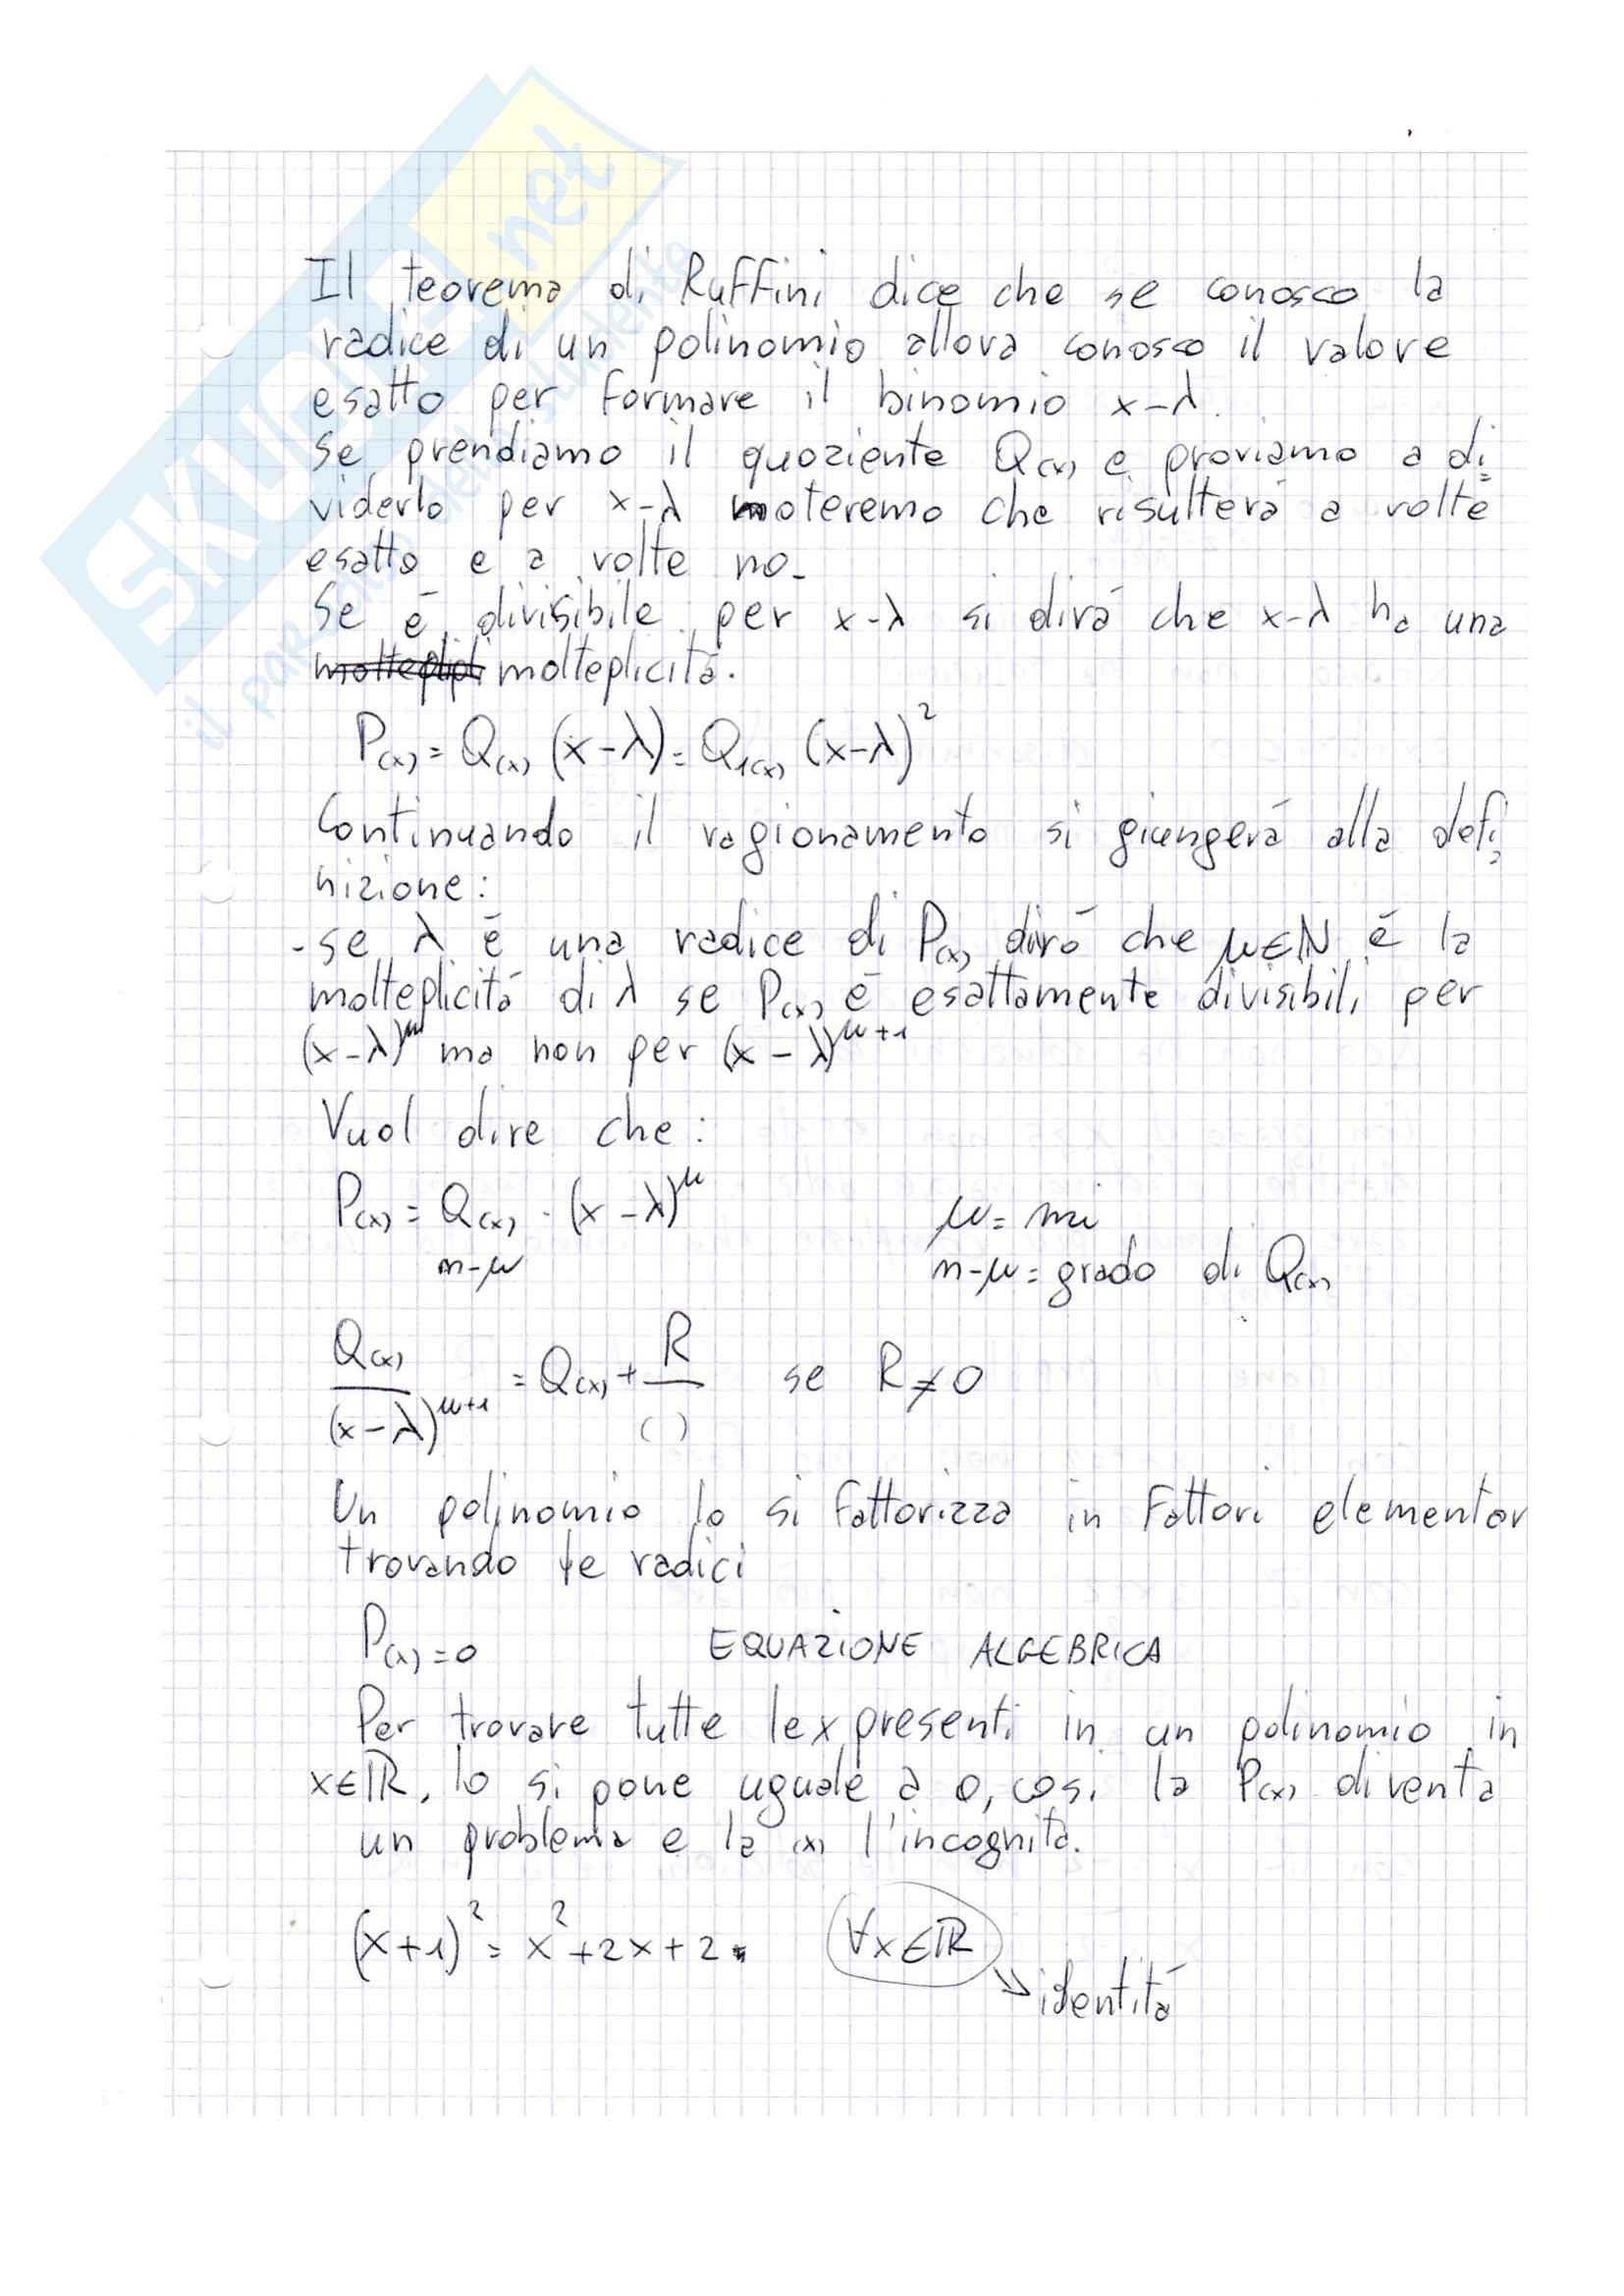 SKUOLA.net
il paradiso dello studente
Il teorema di Ruffini dice che se conosco la
radice di un polinomio allora conosco il valore
esatto per formare il binomio x-λ.
Se prendiamo il quoziente Q(x) e proviamo a di=
viderlo per x-λ noteremo che risulterà a volte
esatto e a volte no-
Se è divisibile per x-λ si dirà che x-λ ha una
molteplicità.
P(x) = Q(x) (x-λ) = Q1(x) (x-λ)²
Continuando il ragionamento si giungerà alla defi
nizione:
-se λ è una radice di P(x) dirò che μ∈N è la
molteplicità di λ se P(x) è esattamente divisibili per
(x-λ)^μ ma non per (x-λ)^μ+1
Vuol dire che:
P(x) = Q(x) · (x-λ)^μ
μ = mi
n-μ
n-μ = grado di Q(x)
Q(x)/(x-λ)^μ+1 = Q(x) + R/( ) se R≠0
Un polinomio lo si fattorizza in fattori elementar
trovando le radici
P(x)=0 EQUAZIONE ALGEBRICA
Per trovare tutte le x presenti in un polinomio in
x∈ℝ, lo si pone uguale a 0, così la P(x) diventa
un problema e la (x) l'incognita.
(x+1)² = x²+2x+2 ∀x∈ℝ
identità